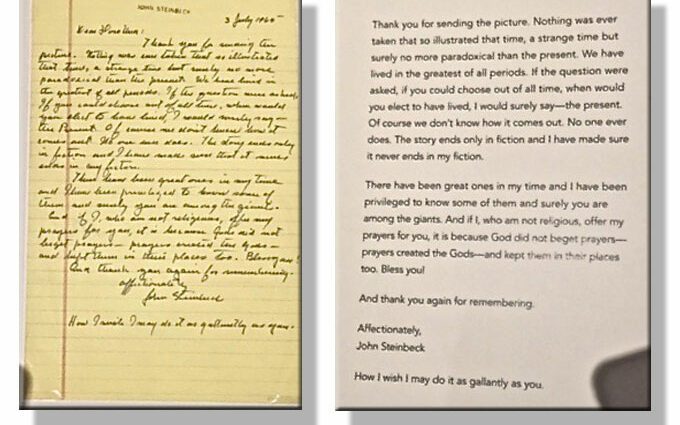 JOHN STEINBECK
3 July 1965
Dear Dorothea:
Thank you for sending the
picture. Nothing was ever taken that so illustrated
that time, a strange time but surely no more
paradoxical than the present. We have lived in
the greatest of all periods. If the question were asked,
If you could choose out of all time, when would
you elect to have lived, I would surely say—
the Present. Of course we don't know how it
comes out. No one ever does. The story ends only
in fiction and I have made sure that it never
ends in my fiction.
There have been great ones in my time
and I have been privileged to know some of
them and surely you are among the giants.
And if I, who am not religious, offer my
prayers for you, it is because Gods did not
beget prayers—prayers created the Gods—
and kept them in their places too. Bless you!
And thank you again for remembering.
affectionately
John Steinbeck
How I wish I may do it as gallantly as you.
Thank you for sending the picture. Nothing was ever
taken that so illustrated that time, a strange time but
surely no more paradoxical than the present. We have
lived in the greatest of all periods. If the question were
asked, if you could choose out of all time, when would
you elect to have lived, I would surely say—the present.
Of course we don't know how it comes out. No one ever
does. The story ends only in fiction and I have made sure
it never ends in my fiction.
There have been great ones in my time and I have been
privileged to know some of them and surely you are
among the giants. And if I, who am not religious, offer my
prayers for you, it is because God did not beget prayers—
prayers created the Gods—and kept them in their places
too. Bless you!
And thank you again for remembering.
Affectionately,
John Steinbeck
How I wish I may do it as gallantly as you.